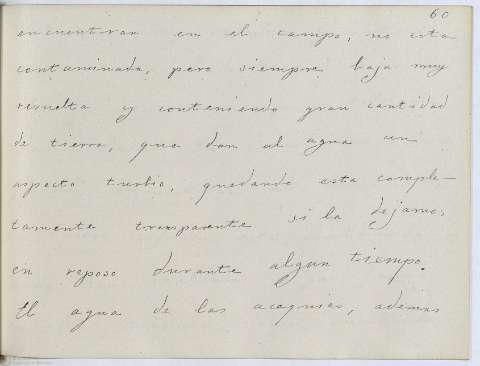 60
encuentran en el campo, no esta
contaminada, pero siempre baja muy
revuelta y conteniendo gran cantidad
de tierra, que dan al agua un
aspecto turbio, quedando esta comple-
tamente transparente si la dejamos
en reposo durante algun tiempo.
El agua de las acequias, ademas